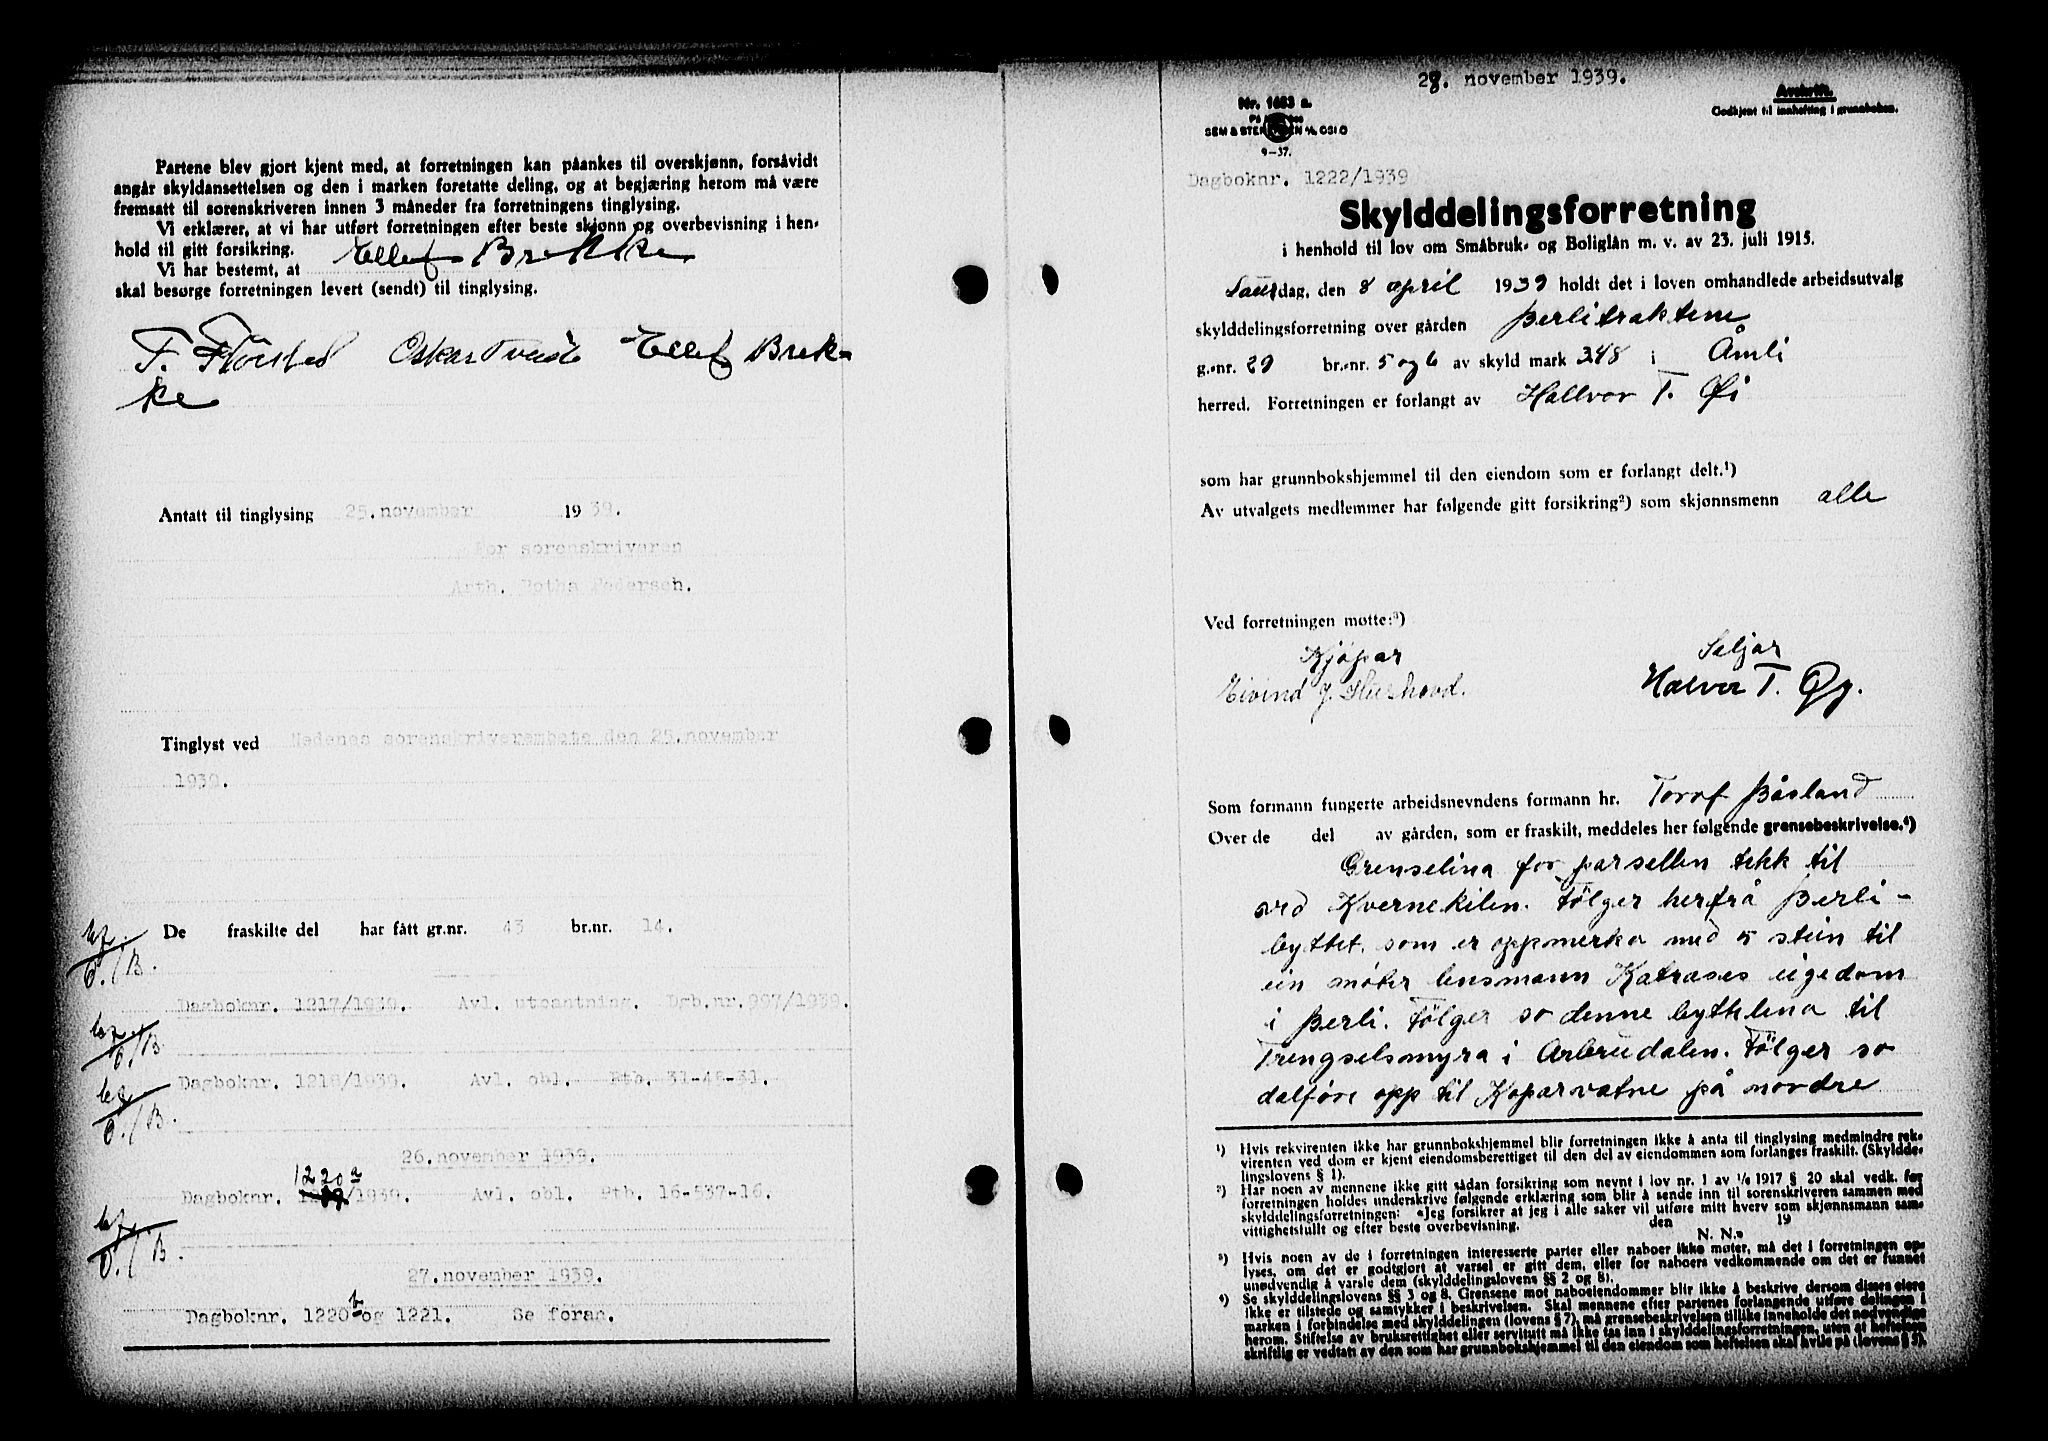 Partene blev gjort kjent med, at forretningen kan påankes til overskjønn, forsåvidt
angår skyldansettelsen og den i marken foretatte deling, og at begjæring herom må være
fremsatt til sorenskriveren innen 3 måneder fra forretningens tinglysing.
Vi erklærer, at vi har utført forretningen efter beste skjønn og overbevisning i hen-
hold til gitt forsikring.
Vi har bestemt, at Ellef Brekke
skal besørge forretningen levert (sendt) til tinglysing.
Oskar Tveit Ellef Brek-
ke
Antatt til tinglysing 25.november 1939.
For sorenskriveren
Arth. Pedersen.
Tinglyst ved Nedenes sorenskriverembete den 25.november
1939.
De fraskilte del har fått gr.nr. 43 br.nr. 14.
Dagboknr. 1217/1939. Avl. utpantning. Dgb.nr. 997/1939.
Dagboknr. 1218/1939. Avl. obl. Ptb. 31-46-31.
26.november 1939.
1220a
Dagboknr. /1939. Avl. obl. Ptb. 16-537-16.
27.november 1939.
Dagboknr. 1220b og 1221. Se foran.
28. november 1939.
Nr. 1683 a.
SEM & STENERSEN A/S OSLO
9-37.
Avskrift.
Godkjent til innhefting i grunnboken.
Dagboknr. 1222/1939
Skylddelingsforretning
i henhold til lov om Småbruk- og Boliglån m. v. av 23. juli 1915.
Laurdag, den 8 april 1939 holdt det i loven omhandlede arbeidsutvalg
skylddelingsforretning over gården Berlitraktene
g.-nr. 29 br.-nr. 5 og 6 av skyld mark 3.48 i Åmli
herred. Forretningen er forlangt av Hallvor T. Øi
som har grunnbokshjemmel til den eiendom som er forlangt delt.¹)
Av utvalgets medlemmer har følgende gitt forsikring²) som skjønnsmenn alle
Ved forretningen møtte:³)
Kjøpar Seljar
Eivind J. Halvor T. Øy.
Som formann fungerte arbeidsnevndens formann hr. Torof Båsland
Over de del av gården, som er fraskilt, meddeles her følgende grensebeskrivelse.⁴)
Grenselina for parsellen tekk til
ved Kvernekilen. Følger herfrå Berli-
byttet, som er oppmerka med 5 stein til
ein møter lensmann Katrases eigedom
i Berli. Følger so denne bytelina til
Trengselsmyra i Arbeudalen. Følger so
dalføre opp til Koparvatne på nordre
¹) Hvis rekvirenten ikke har grunnbokshjemmel blir forretningen ikke å anta til tinglysing medmindre rek-
virenten ved dom er kjent eiendomsberettiget til den del av eiendommen som forlanges fraskilt. (Skyldde-
lingslovens § 1).
²) Har noen av mennene ikke gitt sådan forsikring som nevnt i lov nr. 1 av 1/6 1917 § 20 skal vedk. før
forretningen holdes underskrive følgende erklæring som blir å sende inn til sorenskriveren sammen med
skylddelingsforretningen: «Jeg forsikrer at jeg i alle saker vil utføre mitt hverv som skjønnsmann sam-
vittighetsfullt og efter beste overbevisning. den 19
N. N.»
³) Hvis noen av de i forretningen interesserte parter eller naboer ikke møter, må det i forretningen op-
lyses, om det er godtgjort at varsel er gitt dem, eller for naboers vedkommende om det er funnet
unødvendig å varsle dem (skylddelingslovens §§ 2 og 8).
⁴) Se skylddelingslovens §§ 3 og 8. Grensene mot naboeiendommer blir ikke å beskrive dersom disses eiere
ikke er tilstede og samtykker i beskrivelsen. Skal mennene efter partenes forlangende utføre delingen i
marken i forbindelse med skylddelingen (lovens § 7), må grensebeskrivelsen tillike inneholde det nødvendige
herom. Stiftelse av bruksrettighet eller servitutt må ikke tas inn i skylddelingsforretningen, uten at heftelsen
skriftlig er vedtatt av den som har grunnbokshjemmel til den eiendom som heftelsen skal hvile på (lovens § 5).